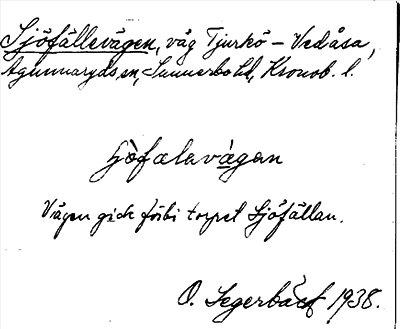 Sjöfällevägen, väg Tjurkö – Vedåsa,
Agunnaryds sn, Sunnerbo hd, Kronob. l.
sjöfalavägan
Vägen gick förbi torpet Sjöfällan.
O. Segerbäck 1938.